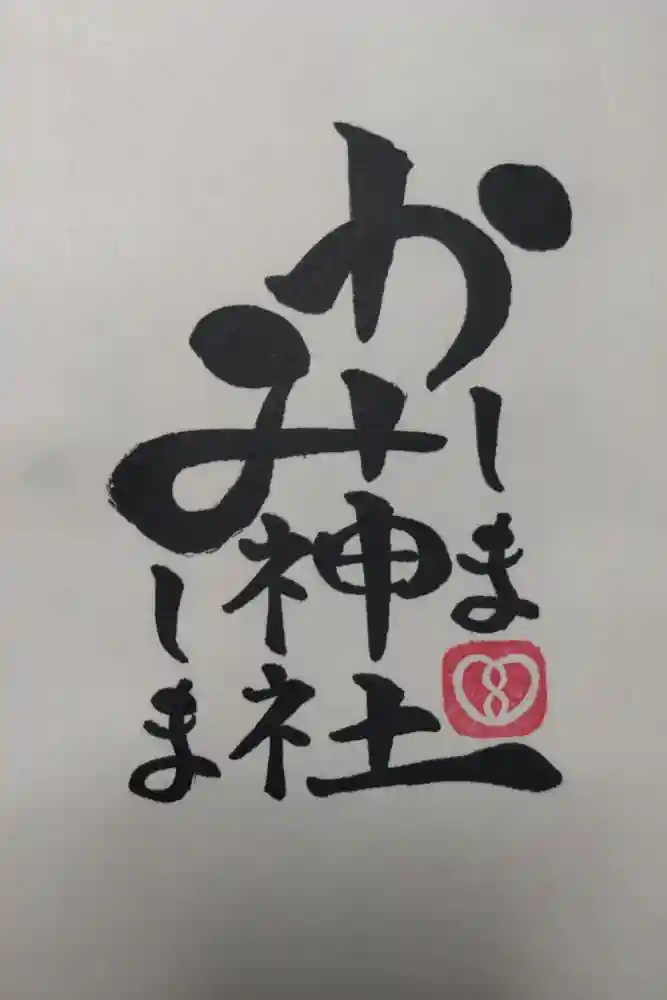 かしま
みしま
神社